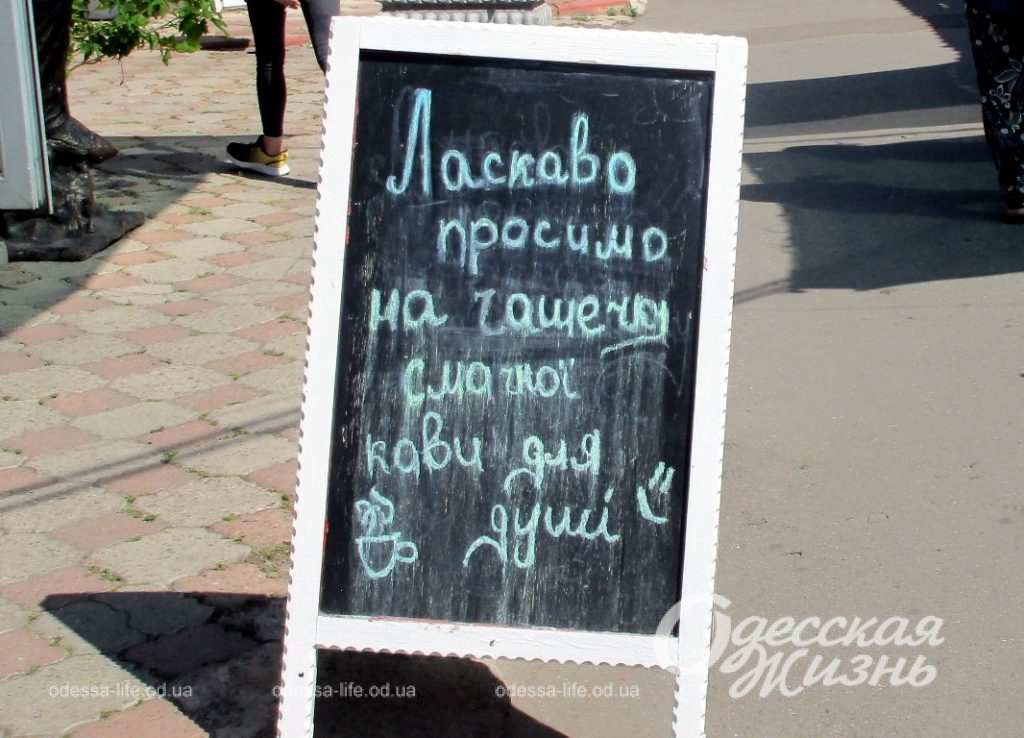 Ласкаво
просимо
на чашечку
смачної
кави для
душі
Одесская
Жизнь
odessa-life.od.ua odessa-life.od.ua odessa-life.od.ua